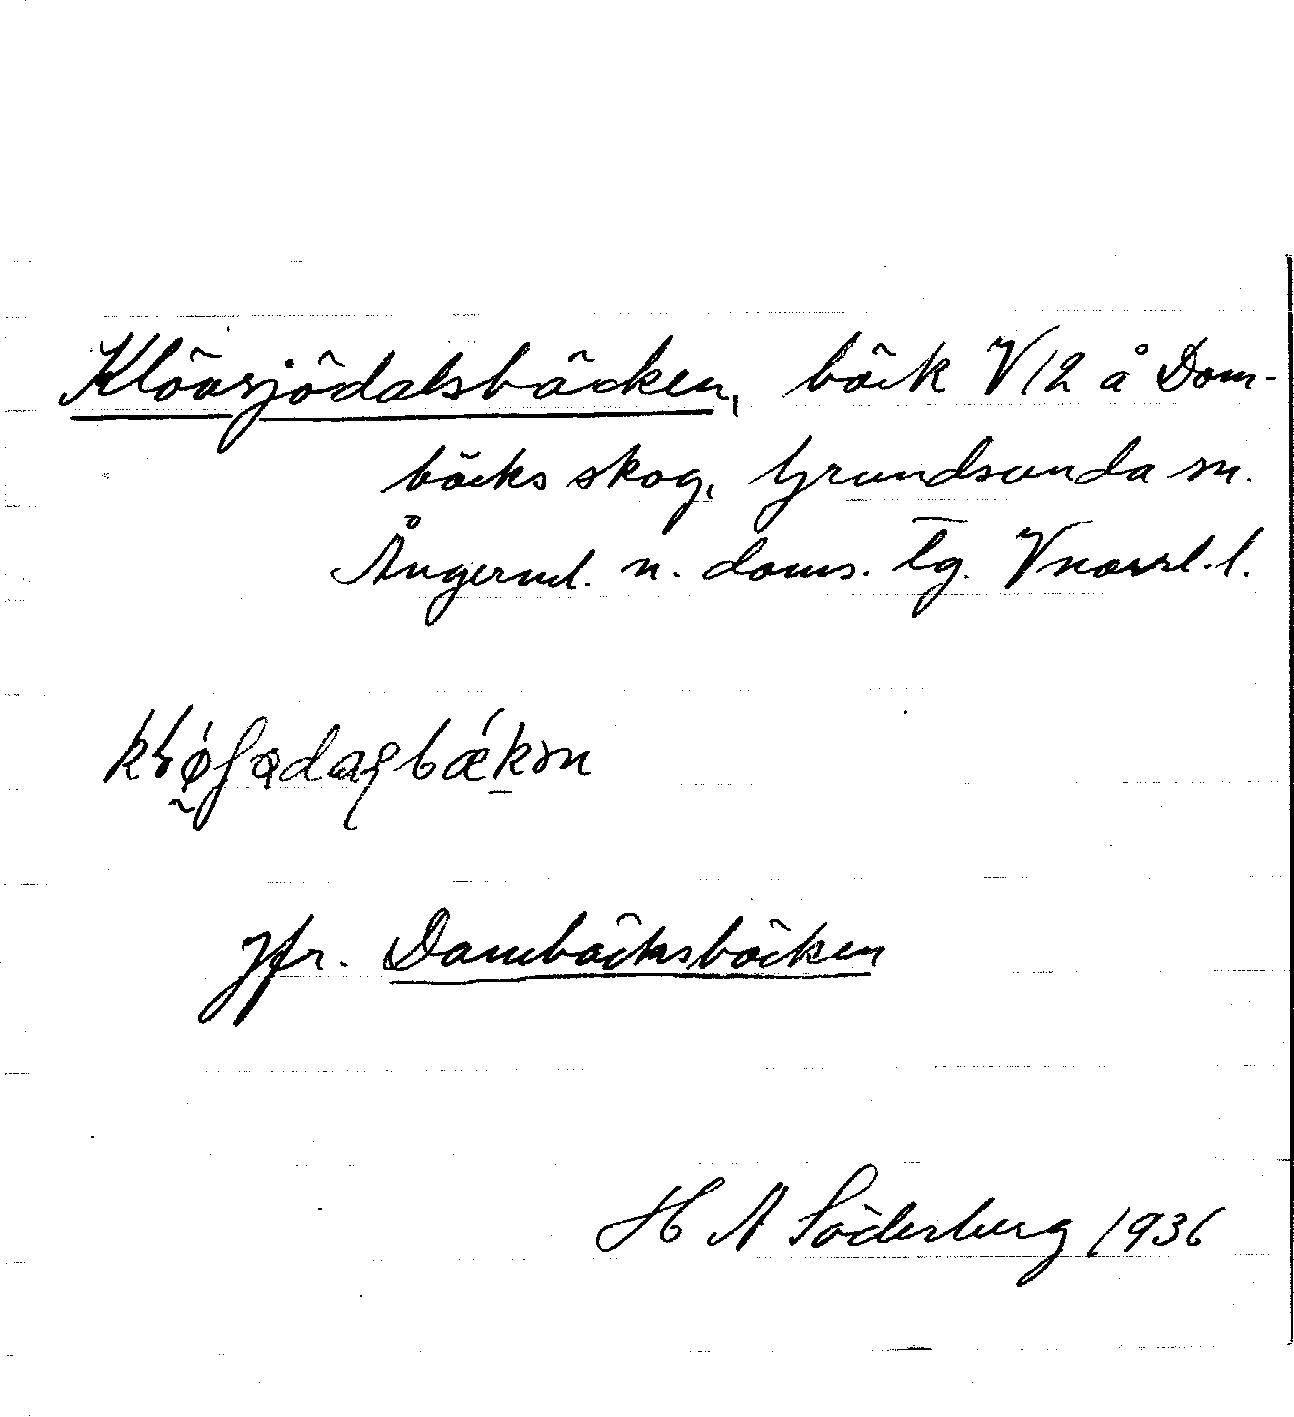 Klövsjödalsbäcken, bäck V12 å Dom-
bäcks skog, Grundsunda sn.
Ångerml. n. doms. tg. Vnorrl. l.
Jfr. Dombäcksbäcken
H A Söderberg 1936